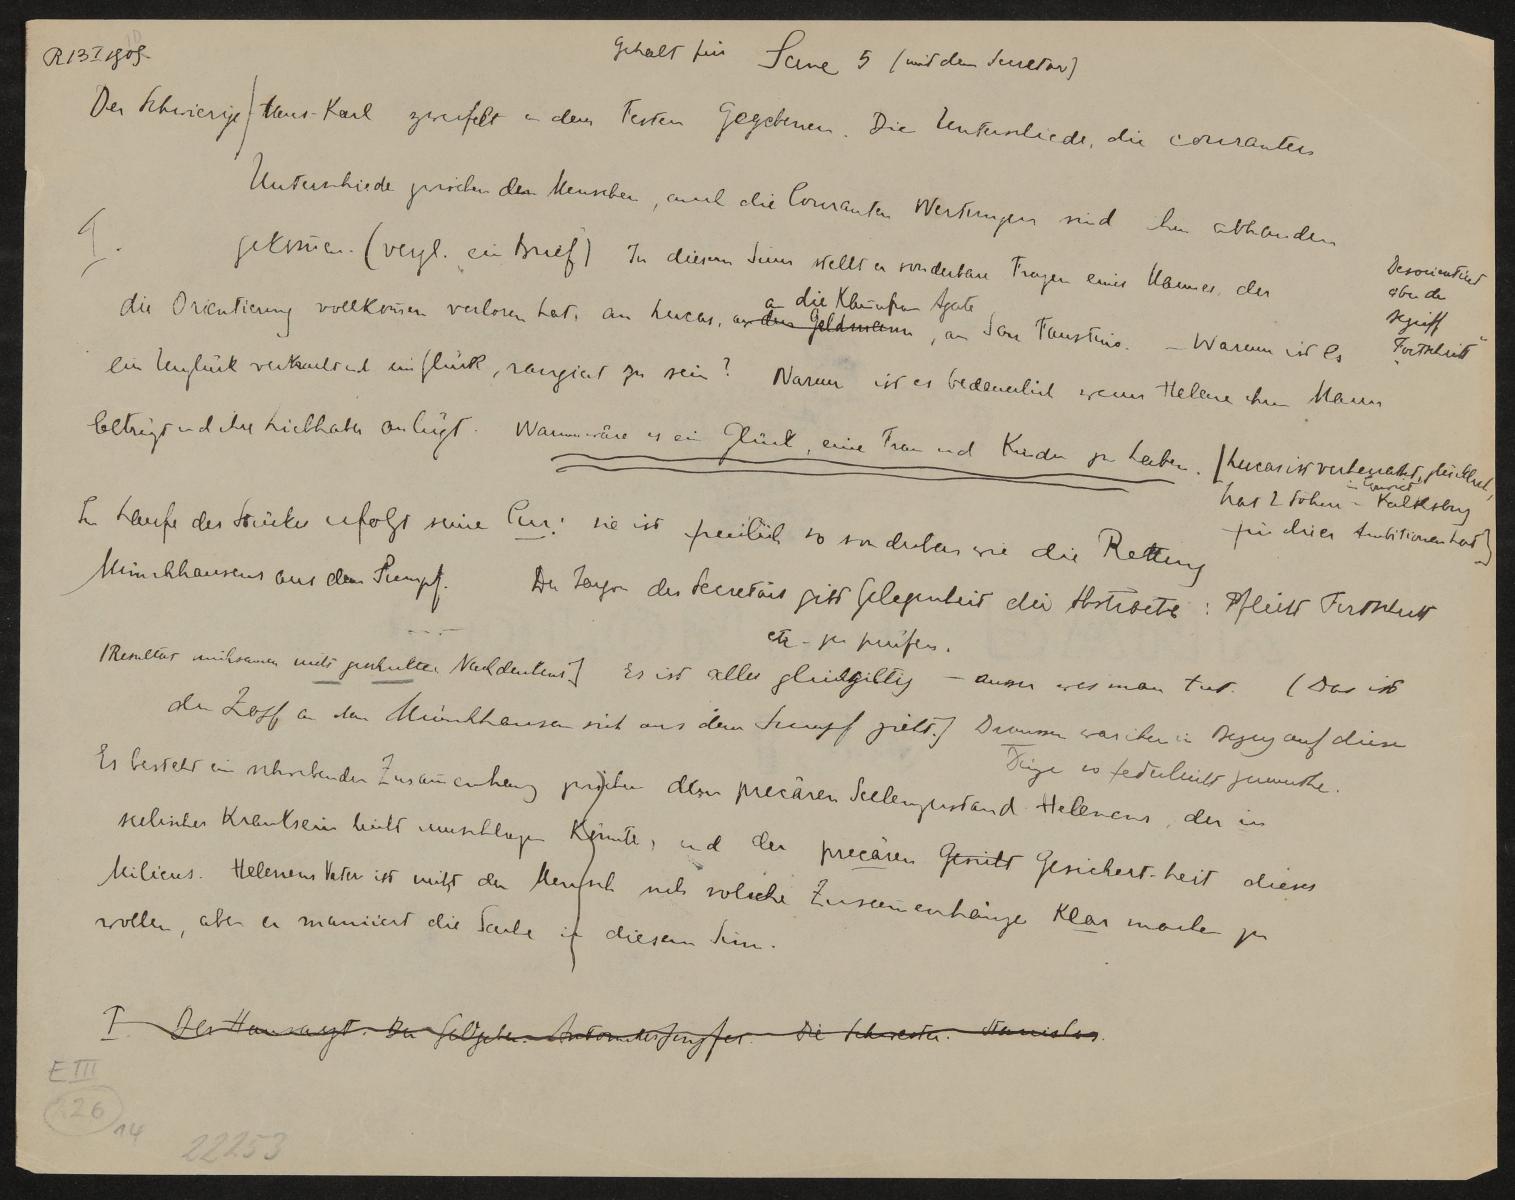 R 13 I 1909.
Gehalt für Scene 5 (mit dem Secretär)
Der Schwierige / Hans-Karl zweifelt an dem Festen Gegebenen. Die Unterschiede, die couranten
Unterschiede zwischen den Menschen, auch die Couranten Wertungen sind ihm abhanden
gekom̄en. (vergl. „ein Brief) In diesem Sinn stellt er sonderbare Fragen eines Mannes, der
Desorientiert
über den
Begriff
„Fortschritt"
a die Kam̄erjfr. Agate
die Orientierung vollkom̄en verloren hat, an Lucas, an den Geldmann, an San Faustino. – Warum ist es
ein Unglück verkauft und ein Glück, rangiert zu sein? Warum ist es bedauerlich wenn Helene ihren Mann
betrügt und ihre Liebhaber anlügt. Warum wäre es ein Glück, eine Frau und Kinder zu haben. (Lucas ist verheiratet, glücklich,
hat 2 Söhne im Convict Kalksburg
für die er Ambitionen hat)
Im Laufe des Stückes erfolgt seine Cur: sie ist freilich so sonderbar wie die Rettung
Münchhausens aus dem Sumpf. Der Jargon des Secretärs gibt Gelegenheit die Abstracta: Pflicht Fortschritt
etc – zu prüfen.
(Resultat mühsamen nicht geschulten Nachdenkens) Es ist alles gleichgiltig – ausser was man tut. (Das ist
der Zopf an dem Münchhausen sich aus dem Sumpf zieht.) Draussen war ihm in Bezug auf diese
Dinge so federleicht zumuthe.
Es besteht ein schwebender Zusam̄enhang zwischen dem precären Seelenzustand Helenens, der in
seelisches Kranksein leicht umschlagen könnte, und der precären Gesich Gesichert-heit dieses
Milieus. Helenens Vater ist nicht der Mensch sich solche Zusam̄enhänge klar machen zu
wollen, aber er maniiert die Sache in diesem Sinn.
I. Der Hausarzt. Der Geldgeber. Die Schwester. Stanislas.
E III
226
14
22253